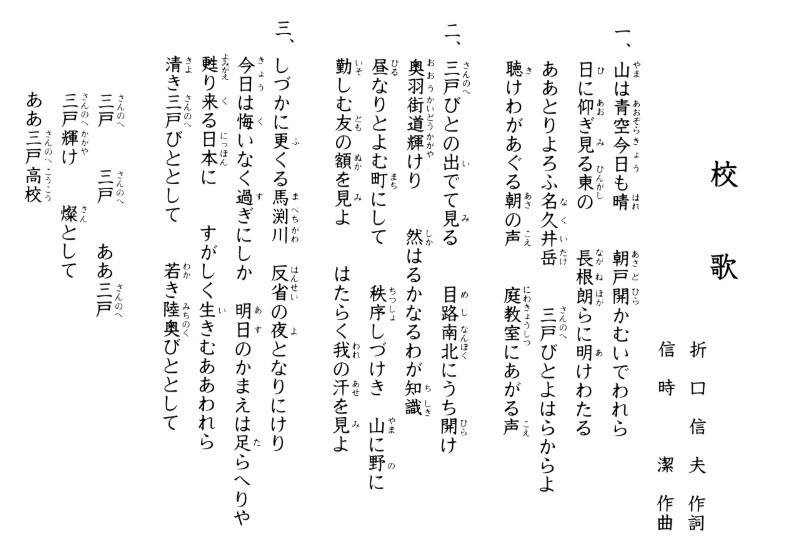 校歌
折口信夫 作詞
信時 潔 作曲
一、山は青空今日も晴 朝戸開かむいでわれら
日に仰ぎ見る東の 長根朗らに明けわたる
ああとりよろふ名久井岳 三戸びとよはらからよ
聴けわがあぐる朝の声 庭教室にあがる声
二、三戸びとの出でて見る 目路南北にうち開け
奥羽街道輝けり 然はるかなるわが知識
昼なりとよむ町にして 秩序しづけき 山に野に
勤しむ友の額を見よ はたらく我の汗を見よ
三、しづかに更くる馬渕川 反省の夜となりにけり
今日は悔いなく過ぎにしか 明日のかまえは足らへりや
甦り来る日本に すがしく生きむああわれら
清き三戸びととして 若き陸奥びととして
三戸 三戸 ああ三戸
三戸輝け 燦として
ああ三戸高校